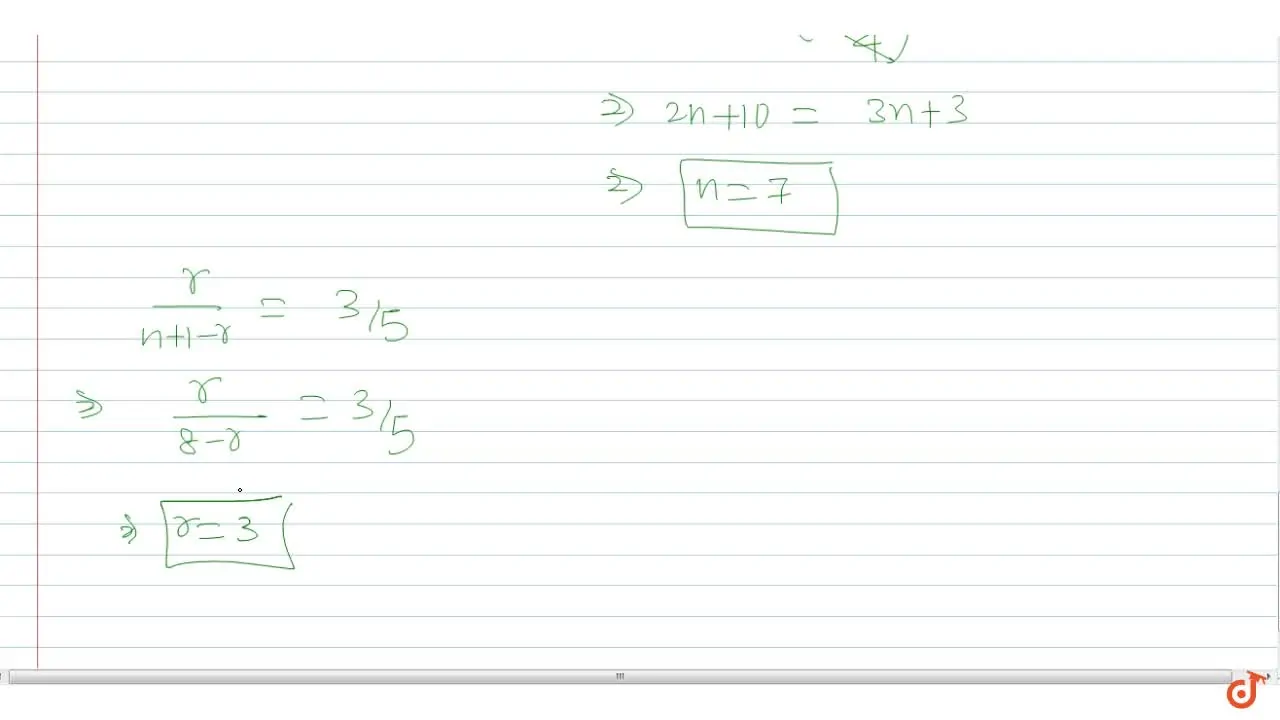 ⇒ 2n+10 = 3n+3
⇒ n=7
r/(n+1-r) = 3/5
⇒ r/(8-r) = 3/5
⇒ r=3